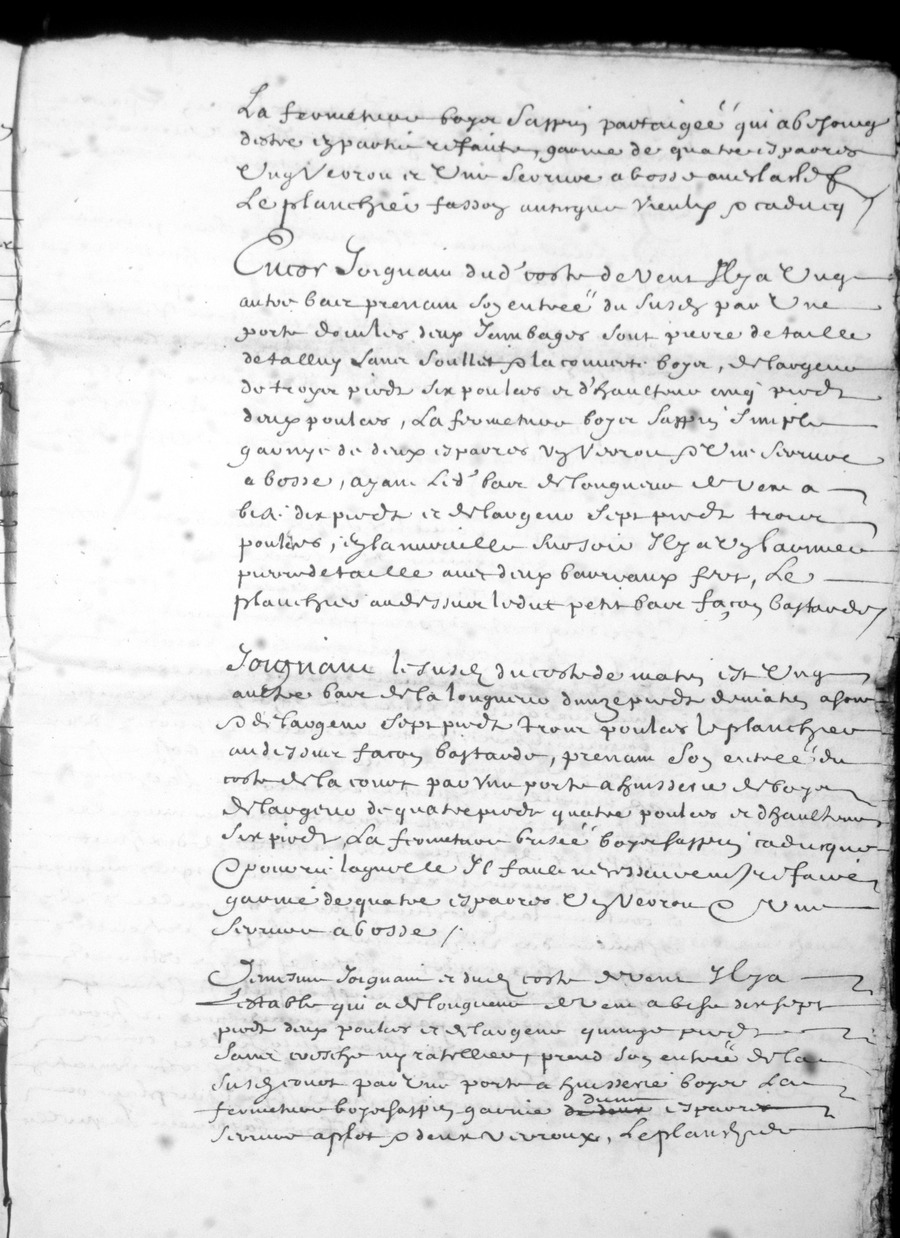 La fermeture boys sappin partaigée qui a besoing
destre en partie refaite, garnie de quatre espares
Ung verrou et Une serrure a bosse avec la clef
Le planchier fasson anticque vieulx & caducq /
Encor Joignant dud' costé de vent Il y a Ung
autre bair prenant son entrée du susd par Une
porte dont les deux Jambages sont pierre de taille
de talleux sans soullet & la couverte boys, de largeur
de troys piedz six poulces et d'haulteur cinq piedz
deux poulces, La fermeture boys sappin simple
garnye de deux espares, Ung verrou & Une serrure
a bosse, ayant led' bair de longueur de vent a
bise dix piedz et de largeur sept piedz trois
poulces, en la muraille Il y a Ung larmier
pierre de taille avec deux barreaux fert, Le
planchier au dessus ledict petit bair façon bastarde /
Joignant le susd du costé de matin est Ung
aultre bair de la longueur d'unze piedz de matin a soir
& de largeur sept piedz trois poulces le planchier
au dessus façon bastarde, prenant son entrée du
costé de la court par une porte a huisserie de boys
de largeur de quatre piedz quatre poulces et d'haulteur
six piedz, La fermeture brisée boys sappin caducque
& pourrie laquelle Il fault nécessairement refaire
garnie de quatre espares Ung verrou & Une
serrure a bosse /.
De mesme Joignant et dud coste de vent Il y a
L'estable qui a de longueur de vent a bise dix sept
piedz deux poulces et de largeur quinze piedz
sans creche ny ratellier, prend son entrée de la
susd court par une porte a huisserie boys La
fermeture boys sappin garnie d'une espare
serrure a plot & deux verroux, Le planchier